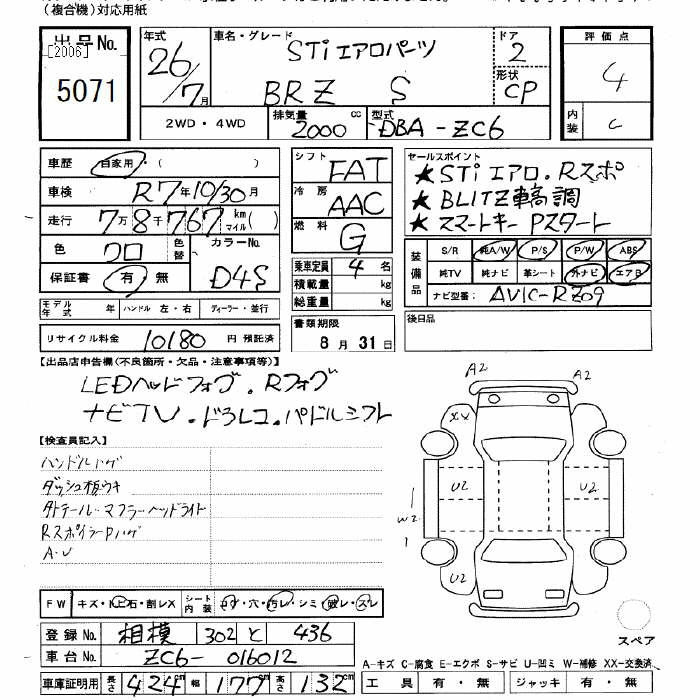 (複合機)対応用紙
出品No. [2006] 5071
年式 26/7月
車名・グレード STiエアロパーツ BRZ S
ドア 2
形状 CP
評価点 4
内装 C
2WD・4WD
排気量 2000 cc
型式 DBA-ZC6
車歴 自家用・( )
車検 R7年10/30月
走行 7万8千767 km マイル( )
色 クロ 色替 カラーNo. D4S
保証書 有 無
モデル年式 年 ハンドル 左・右 ディーラー・並行
リサイクル料金 10180 円 預託済
シフト FAT
冷房 AAC
燃料 G
乗車定員 4 名
積載量 kg
総重量 kg
書類期限 8月31日
セールスポイント
★STiエアロ.Rスポ
★BLITZ車高調
★スマートキー Pスタート
装備品 S/R 純A/W P/S P/W ABS
純TV 純ナビ 革シート 外ナビ エアB
ナビ型番: AVIC-RZ09
後日品
【出品店申告欄(不良箇所・欠品・注意事項等)】
LEDヘッドフォグ.Rフォグ
ナビTV.ドラレコ.パドルシフト
【検査員記入】
ハンドルハゲ
ダッシュ板ウキ
外テール・マフラーヘッドライト
RスポイラーPハゲ
A・U
FW キズ・トビ石・割レX シート内装 コゲ・穴・汚レ・シミ・破レ・スレ
登録No. 相模 302 と 436
車台No. ZC6-016012
車庫証明用 長さ 424cm 幅 177cm 高さ 132cm
A2 A2
XX
U2 U2
W2
U2
スペア
A-キズ C-腐食 E-エクボ S-サビ U-凹ミ W-補修 XX-交換済
工具 有・無 ジャッキ 有・無